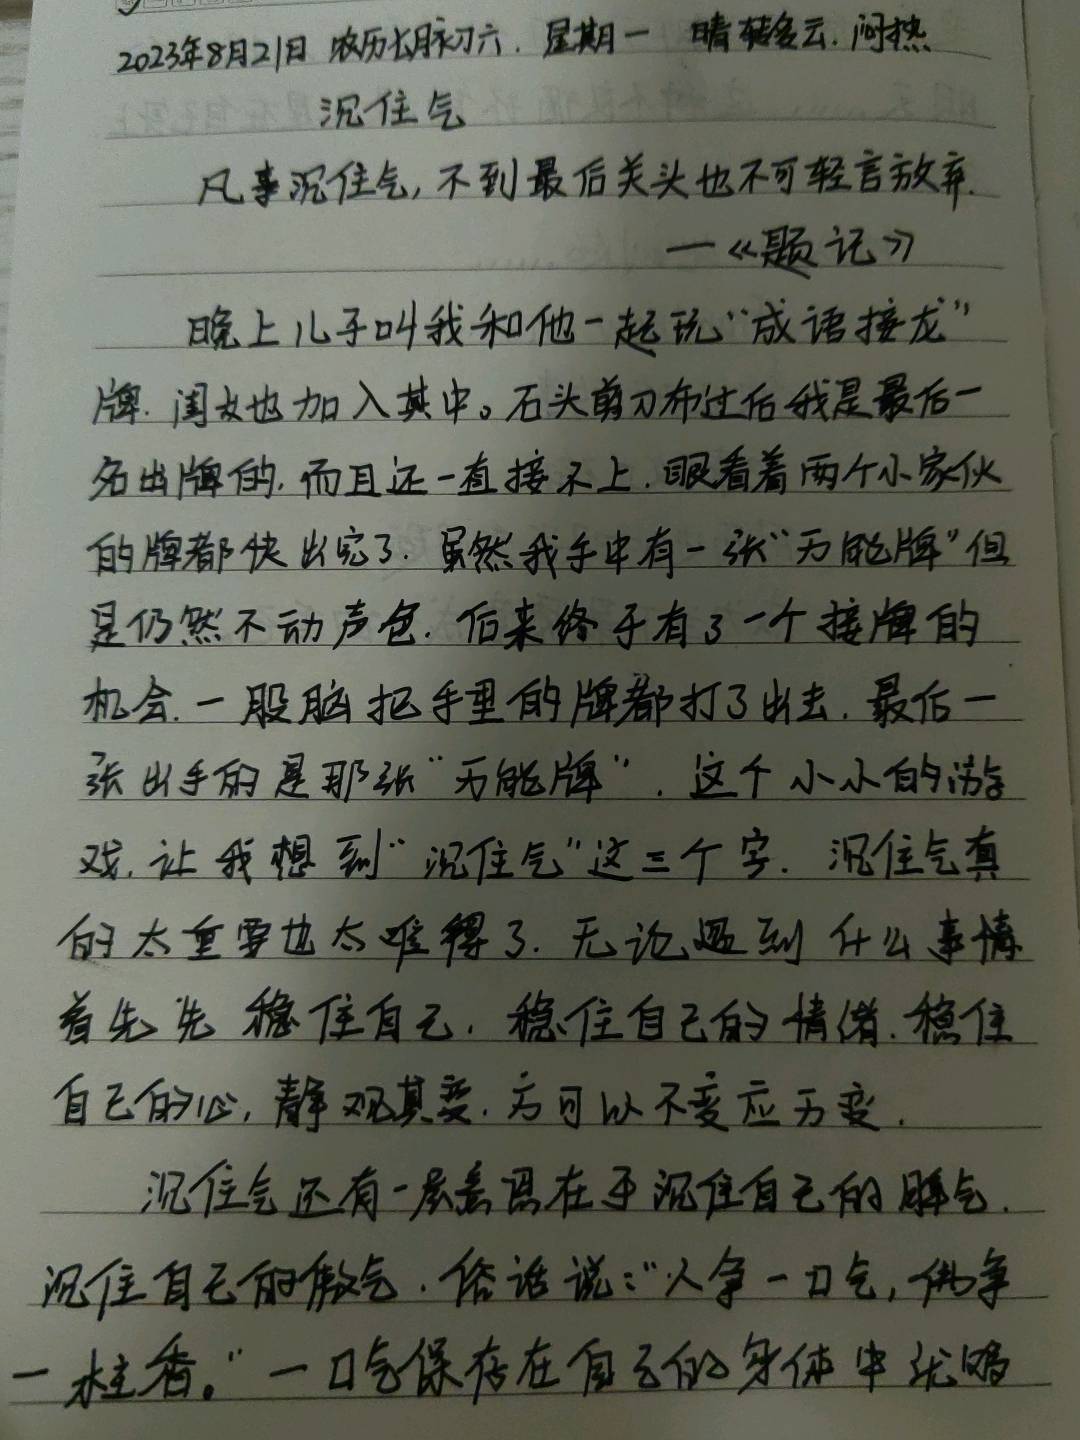 2023年8月21日 农历七月初六. 星期一 晴转多云. 闷热
沉住气
凡事沉住气, 不到最后关头也不可轻言放弃.
—《题记》
晚上儿子叫我和他一起玩“成语接龙”
牌. 闺女也加入其中。石头剪刀布过后我是最后一
名出牌的. 而且还一直接不上. 眼看着两个小家伙
的牌都快出完了. 虽然我手中有一张“万能牌”但
是仍然不动声色. 后来终于有了一个接牌的
机会. 一股脑把手里的牌都打了出去. 最后一
张出手的是那张“万能牌”. 这个小小的游
戏, 让我想到“沉住气”这三个字. 沉住气真
的太重要也太难得了. 无论遇到什么事情
首先先稳住自己. 稳住自己的情绪. 稳住
自己的心, 静观其变. 方可以不变应万变.
沉住气还有一层意思在于沉住自己的脾气.
沉住自己的傲气. 俗话说:“人争一口气, 佛争
一柱香。”一口气保存在自己的身体中就够